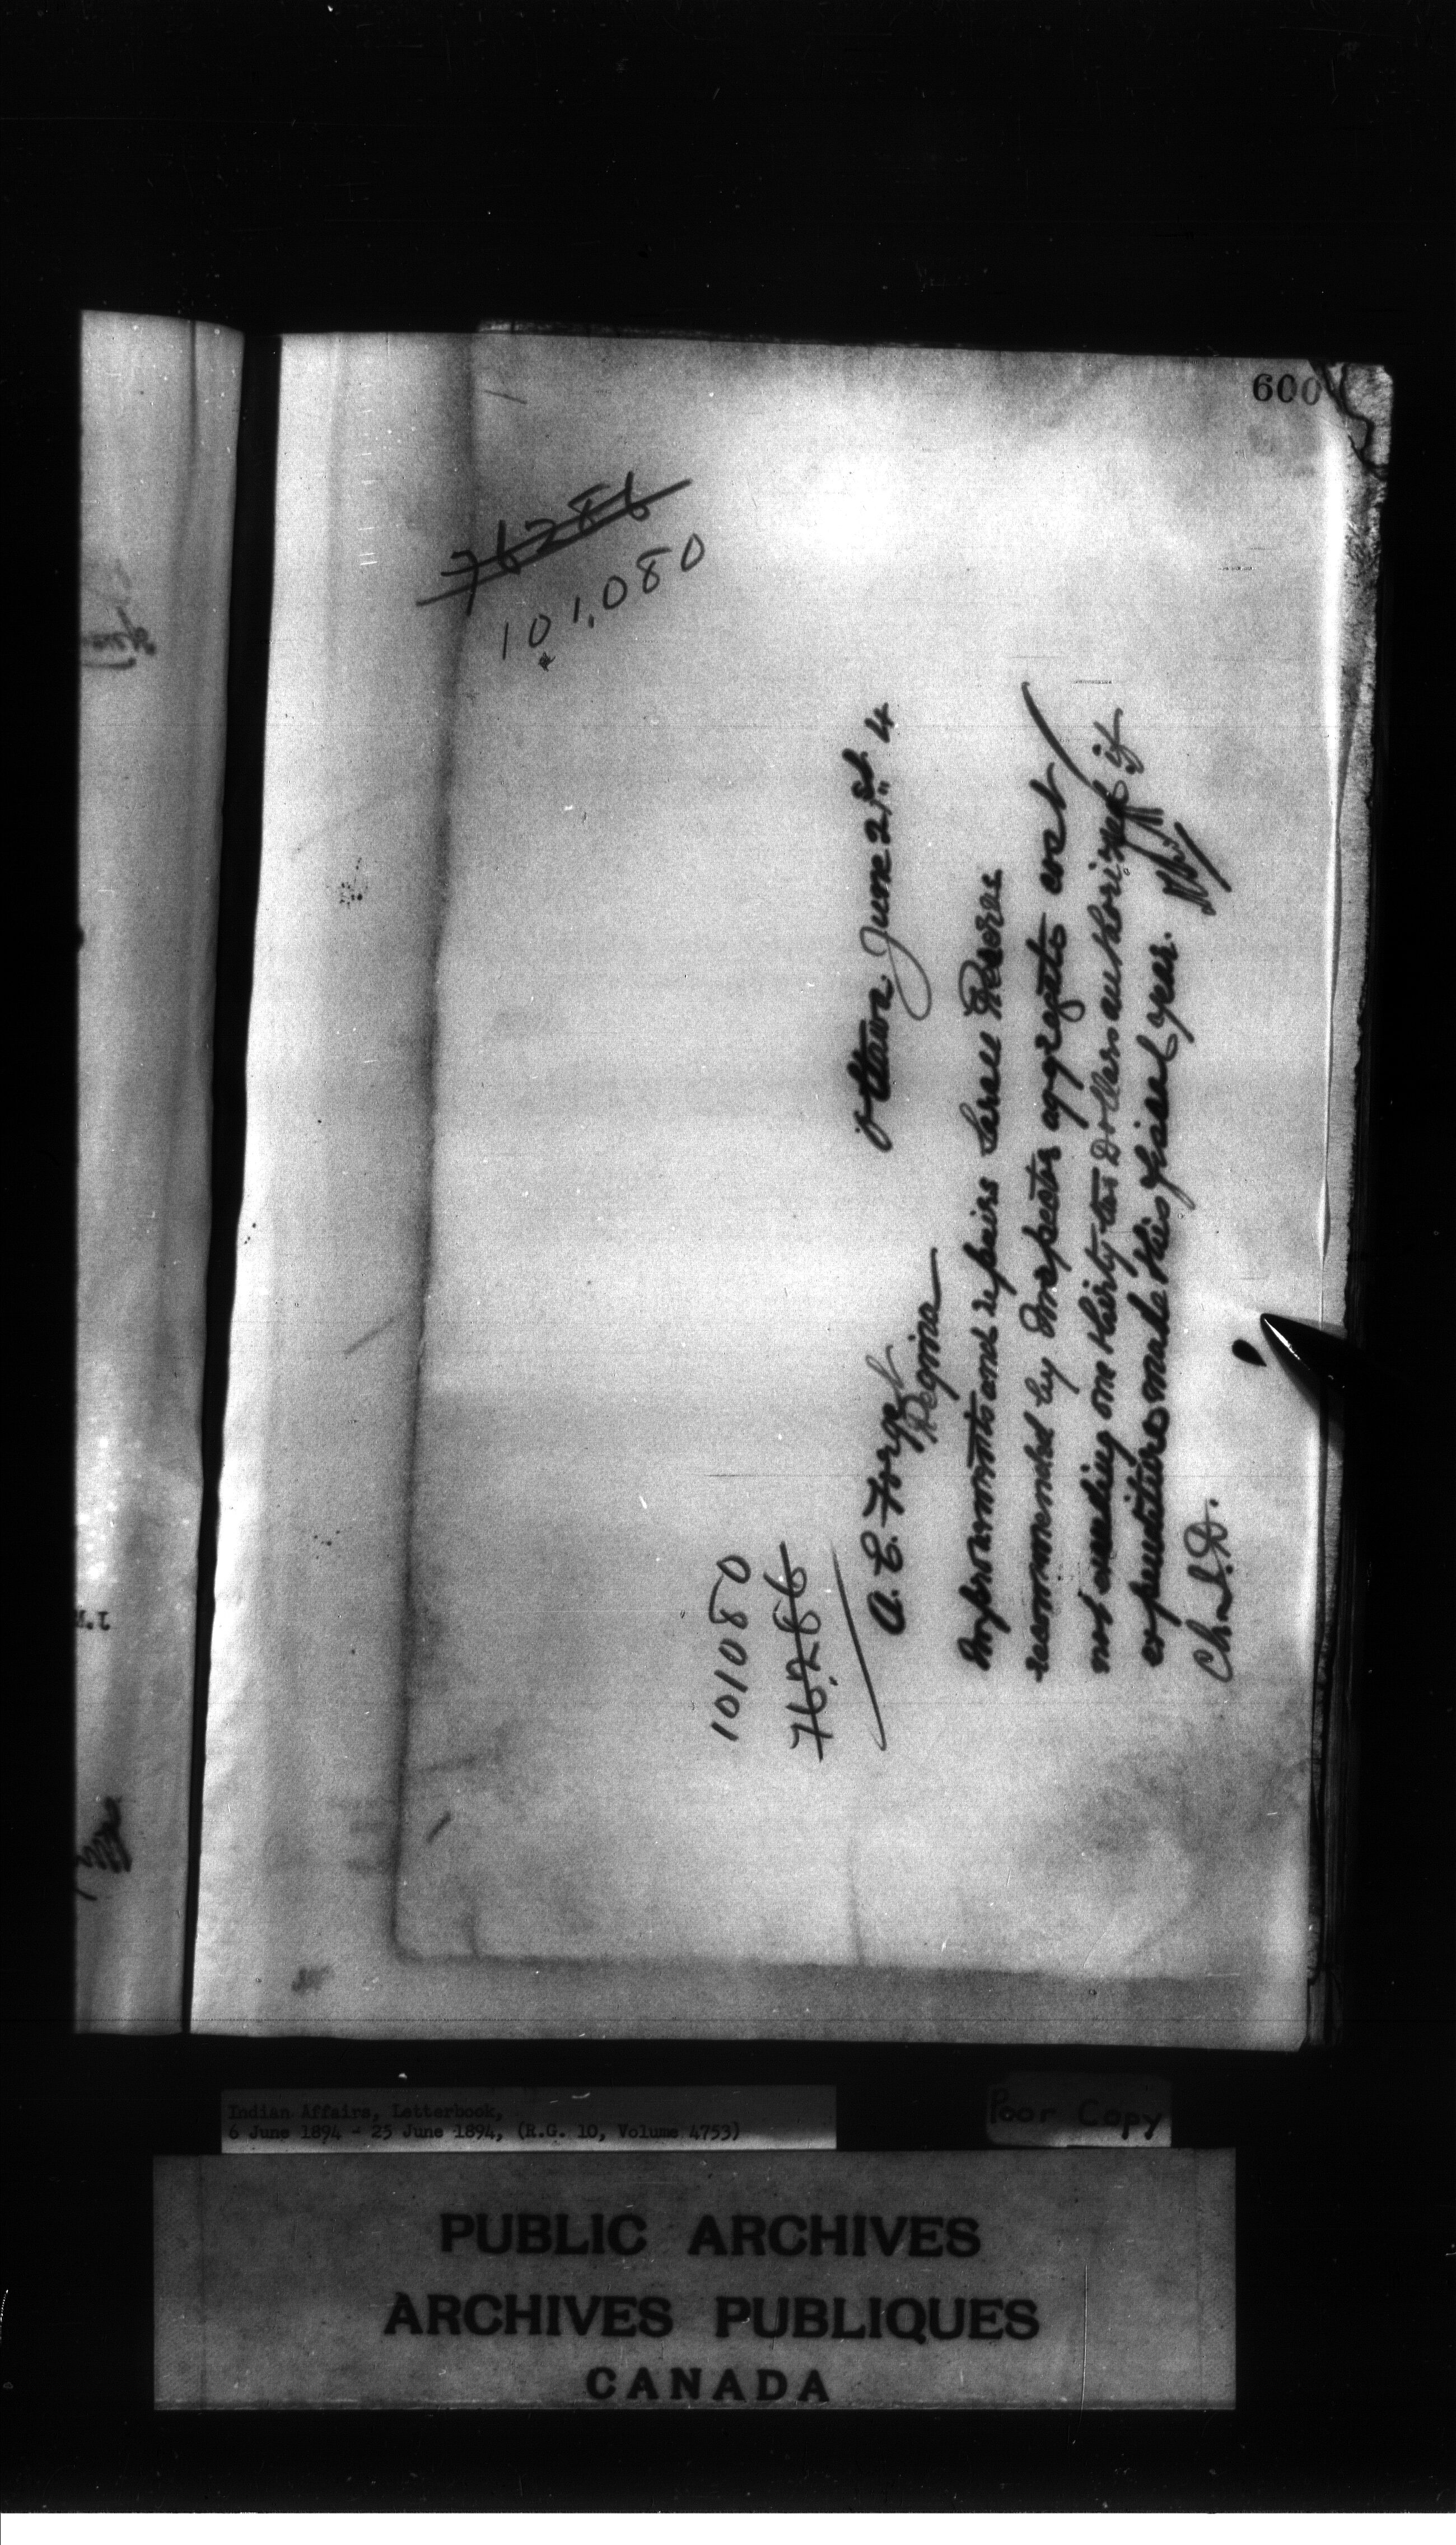 600
76286
101,080
101080
76286
Ottawa June 21st 4
A. E. Forget
Regina
Improvements and repairs Sarcee Reserve
recommended by Inspector aggregate cost
not exceeding one thirty two Dollars authorized if
expenditure made this fiscal year.
Ch. I. D.
Indian Affairs, Letterbook,
6 June 1894 - 25 June 1894, (R.G. 10, Volume 4753)
Poor Copy
PUBLIC ARCHIVES
ARCHIVES PUBLIQUES
CANADA